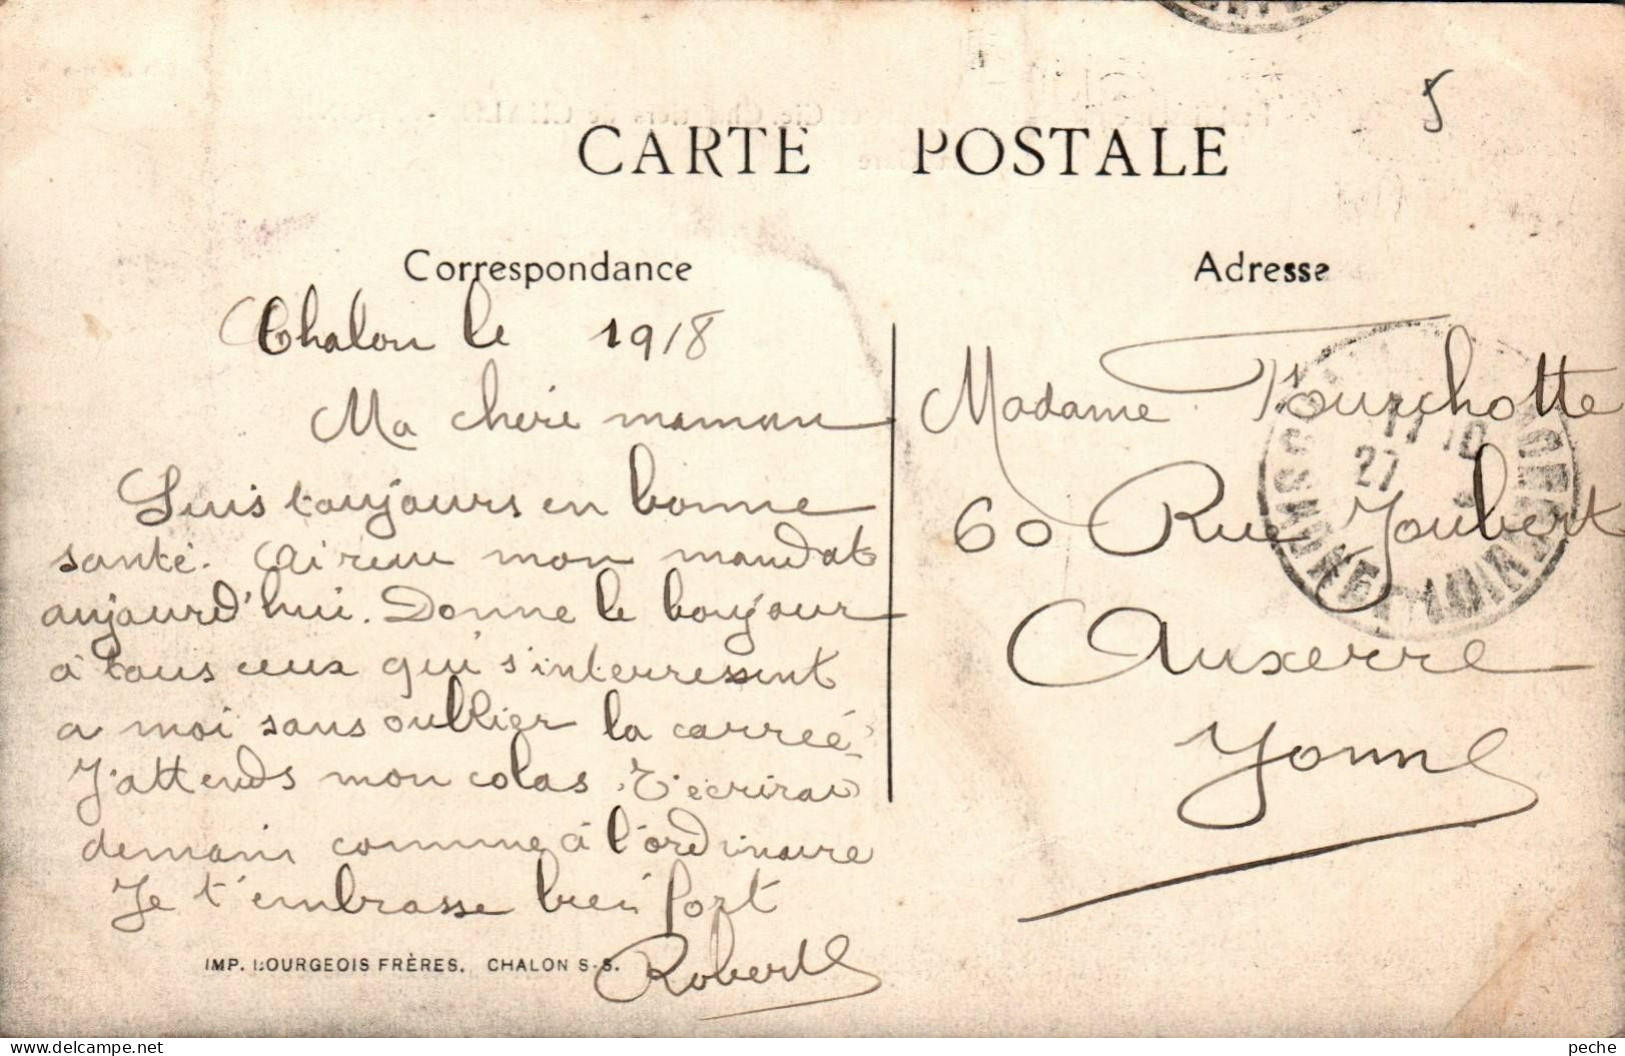 5
CARTE POSTALE
Correspondance
Chalon le 1918
Ma chere maman
Suis toujours en bonne
santé. Ai reçu mon mandat
aujourd'hui. Donne le bonjour
à tous ceux qui s'interressent
a moi sans oublier la carreé
J'attends mon colas. T'ecrirai
demain comme à l'ordinaire
Je t'embrasse bien fort
Robert
IMP. BOURGEOIS FRÈRES. CHALON S-S.
Adresse
Madame Pourchotte
60 Rue Joubert
Auxerre
Yonne
17 10
27
LOIRE
peche